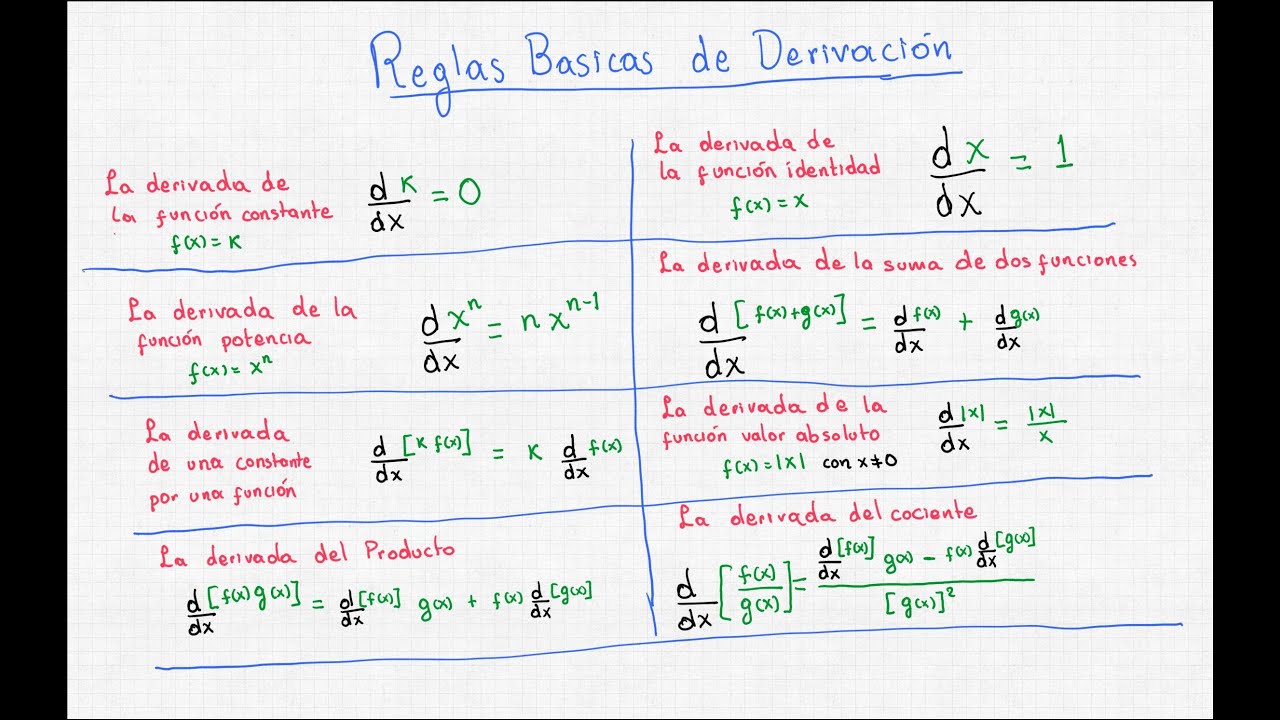 Reglas Basicas de Derivación
La derivada de
la función constante
f(x) = K
d K / dx = 0
La derivada de
la función identidad
f(x) = x
d x / dx = 1
La derivada de la
función potencia
f(x) = xⁿ
d xⁿ / dx = n xⁿ⁻¹
La derivada de la suma de dos funciones
d/dx [f(x)+g(x)] = d f(x)/dx + d g(x)/dx
La derivada
de una constante
por una función
d/dx [K f(x)] = K d/dx f(x)
La derivada de la
función valor absoluto
f(x) = |x| con x≠0
d|x|/dx = |x|/x
La derivada del Producto
d/dx [f(x) g(x)] = d/dx [f(x)] g(x) + f(x) d/dx [g(x)]
La derivada del cociente
d/dx [f(x)/g(x)] = (d/dx [f(x)] g(x) − f(x) d/dx [g(x)]) / [g(x)]²